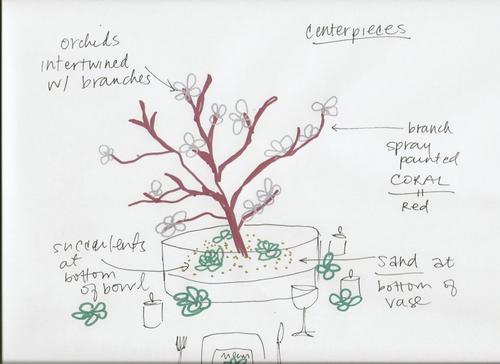 centerpieces
orchids
intertwined
w/ branches
branch
spray
painted
CORAL
Red
succulents
at
bottom
of bowl
sand at
bottom of
vase
menu